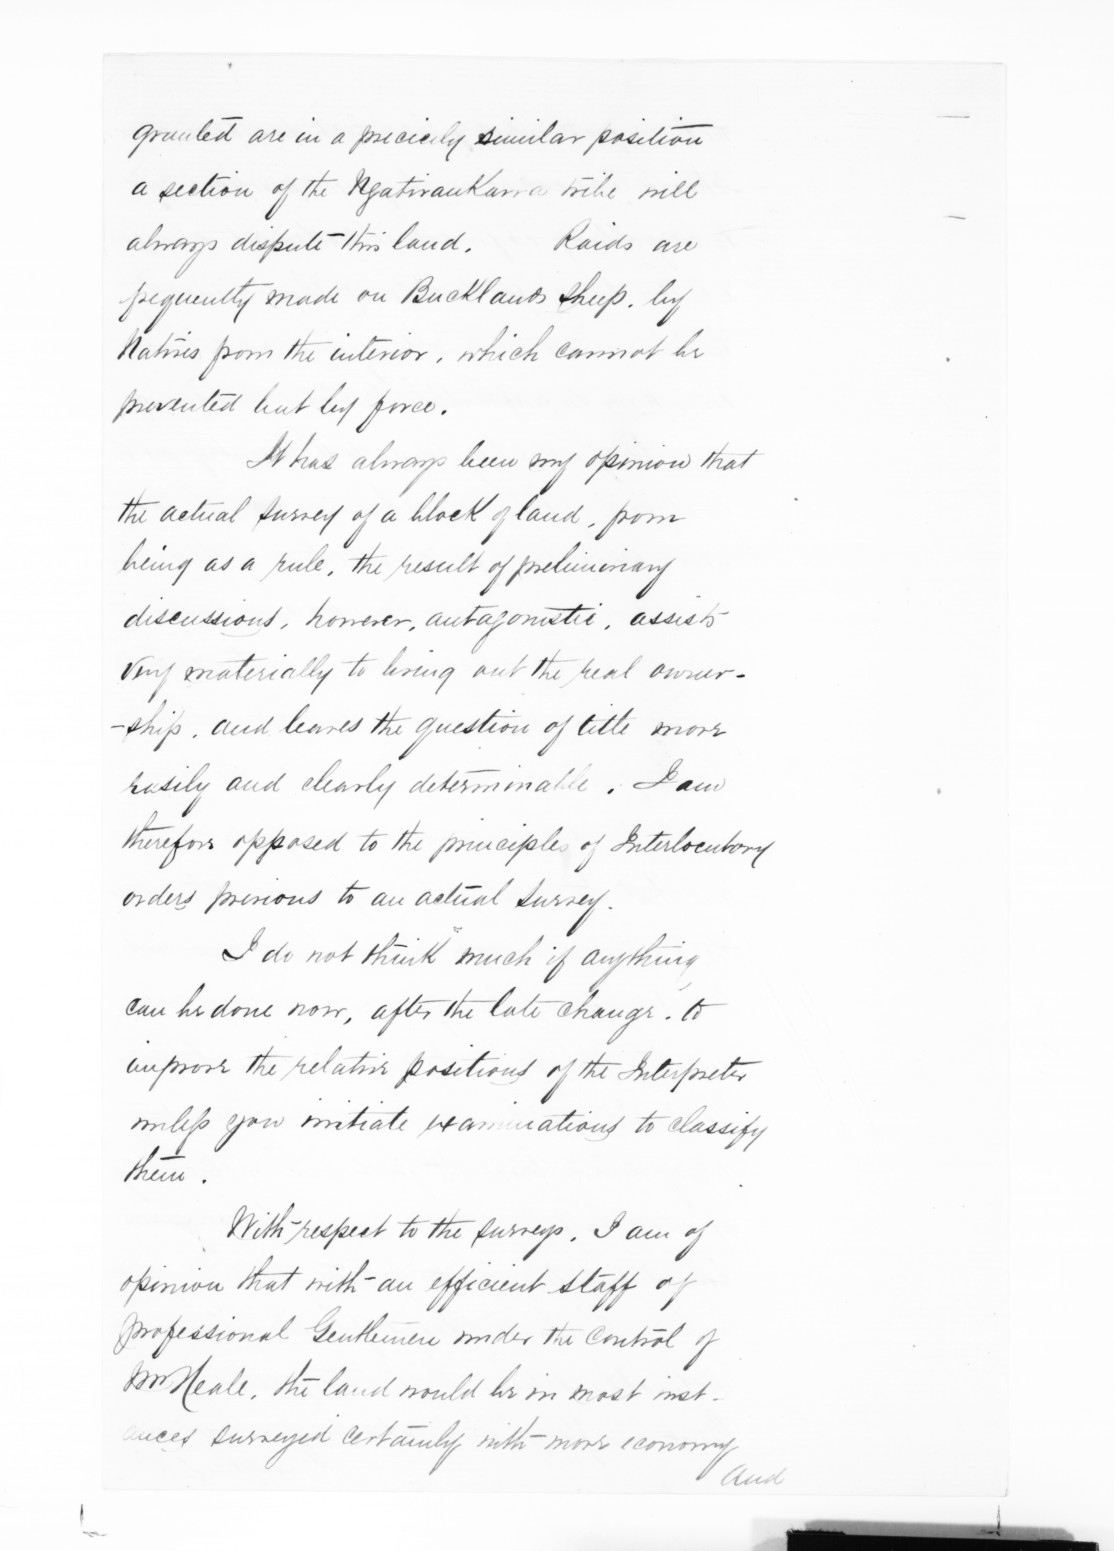 granted are in a precicely similar position
a section of the Ngatiraukawa tribe will
always dispute this land. Raids are
frequently made on Bucklands sheep, by
Natives from the interior, which cannot be
prevented but by force.
It has always been my opinion that
the actual survey of a block of land, from
being as a rule, the result of preliminary
discussions, however, antagonistic, assists
very materially to bring out the real owner-
-ship, and leaves the question of title more
easily and clearly determinable. I am
therefore opposed to the principles of Interlocutory
orders previous to an actual survey.
I do not think much if anything,
can be done now, after the late change, to
improve the relative positions of the Interpreter
unless you initiate examinations to classify
them.
With respect to the surveys, I am of
opinion that with an efficient staff of
professional Gentlemen under the control of
Mr Heale, the land would be in most inst-
ances surveyed certainly with more economy
and